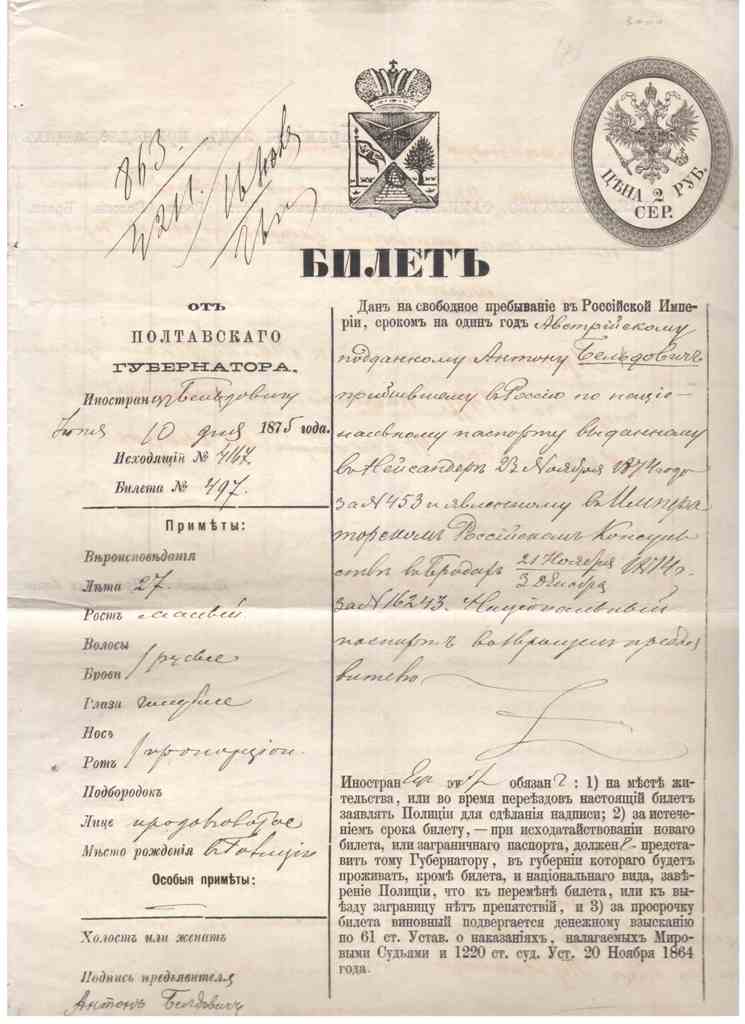 863
4211
ЦѢНА 2 РУБ.
СЕР.
БИЛЕТЪ
отъ
ПОЛТАВСКАГО
ГУБЕРНАТОРА.
Иностранцу Бельдовичу
Іюня 10 дня 1875 года.
Исходящій № 4167
Билета № 497.
Примѣты:
Вѣроисповѣданія
Лѣта 27.
Ростъ малый
Волосы
Брови русые
Глаза голубые
Носъ
Ротъ пропорціон.
Подбородокъ
Лице продолговатое
Мѣсто рожденія въ Галиціи
Особыя примѣты:
Холостъ или женатъ
Подпись предъявителя
Антонъ Белдовичъ
Данъ на свободное пребываніе въ Россійской Импе-
ріи, срокомъ на одинъ годъ Австрійскому
подданному Антону Бельдовичъ
прибывшему въ Россію по націо-
нальному паспорту выданному
въ 23 Ноября 1874 года
за № 453 и явленному въ Импера
торскомъ Россійскомъ Консуль
ствѣ въ Бродахъ 21 Ноября 1874 г.
3 Декабря
за № 16243. Національный
паспортъ возвращенъ предъя
вителю
Иностранецъ этотъ обязанъ: 1) на мѣстѣ жи-
тельства, или во время переѣздовъ настоящій билетъ
заявлять Полиціи для сдѣланія надписи; 2) за истече-
ніемъ срока билету, — при исходатайствованіи новаго
билета, или заграничнаго паспорта, долженъ предста-
вить тому Губернатору, въ губерніи котораго будетъ
проживать, кромѣ билета, и національнаго вида, завѣ-
реніе Полиціи, что къ перемѣнѣ билета, или къ вы-
ѣзду заграницу нѣтъ препятствій, и 3) за просрочку
билета виновный подвергается денежному взысканію
по 61 ст. Устав. о наказаніяхъ, налагаемыхъ Миро-
выми Судьями и 1220 ст. суд. Уст. 20 Ноября 1864
года.